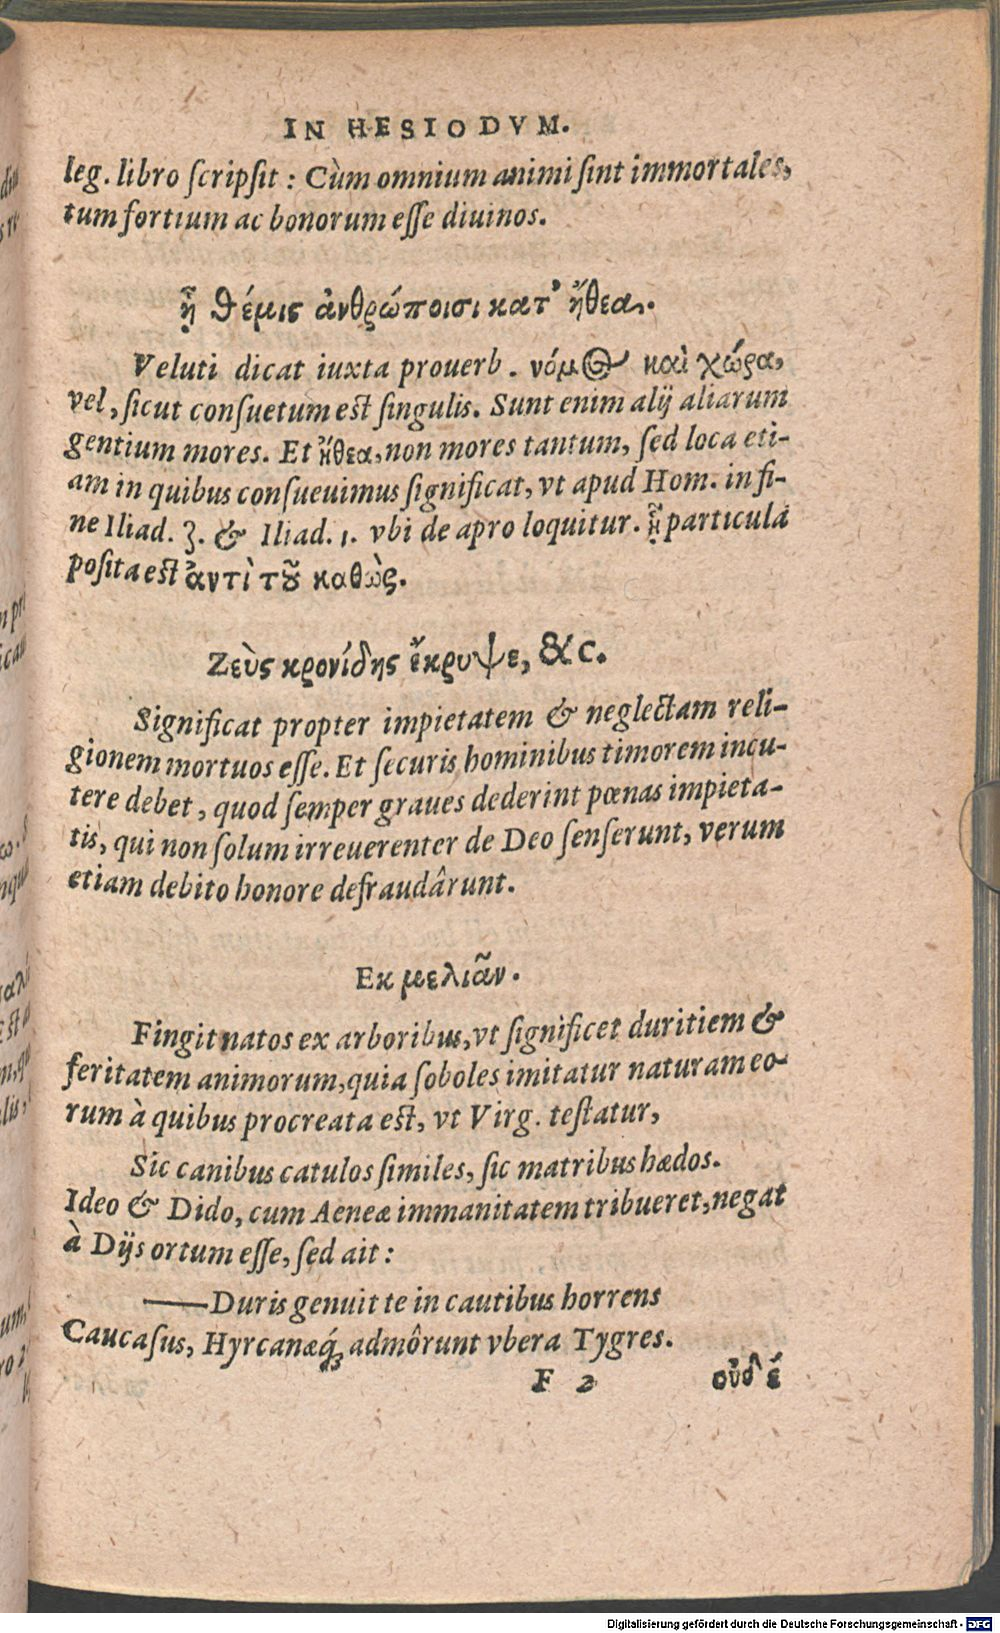 IN HESIODVM.
leg. libro ſcripſit : Cùm omnium animi ſint immortales,
tum fortium ac bonorum eſſe diuinos.
ᾗ θέμις ἀνθρώποισι κατ' ἤθεα.
Veluti dicat iuxta prouerb. νόμος καὶ χώρα,
vel, ſicut conſuetum est ſingulis. Sunt enim alij aliarum
gentium mores. Et ἤθεα, non mores tantum, ſed loca eti-
am in quibus conſueuimus ſignificat, vt apud Hom. in fi-
ne Iliad. ʒ. & Iliad. ι. vbi de apro loquitur. ᾗ particula
poſita est ἀντὶ τοῦ καθὼς.
Ζεὺς κρονίδης ἔκρυψε, &c.
Significat propter impietatem & neglectam reli-
gionem mortuos eſſe. Et ſecuris hominibus timorem incu-
tere debet, quod ſemper graues dederint pœnas impieta-
tis, qui non ſolum irreuerenter de Deo ſenſerunt, verum
etiam debito honore defraudârunt.
Εκ μελιᾶν.
Fingit natos ex arboribus, vt ſignificet duritiem &
feritatem animorum, quia ſoboles imitatur naturam eo-
rum à quibus procreata est, vt Virg. teſtatur,
Sic canibus catulos ſimiles, ſic matribus hædos.
Ideo & Dido, cum Aeneæ immanitatem tribueret, negat
à Dijs ortum eſſe, ſed ait :
——Duris genuit te in cautibus horrens
Caucaſus, Hyrcanæq́; admôrunt vbera Tygres.
F 2 οὐδ' ἔ
Digitalisierung gefördert durch die Deutsche Forschungsgemeinschaft - DFG